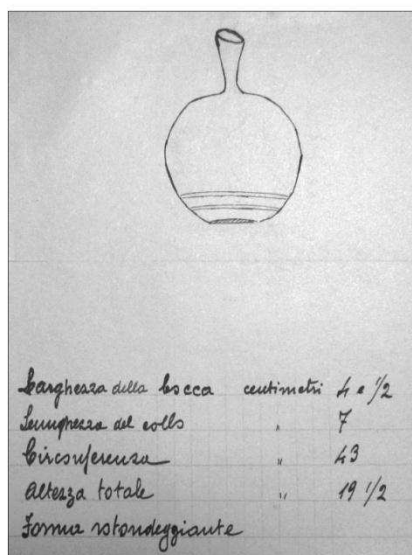 Larghezza della bocca centimetri 4 e 1/2
Lunghezza del collo " 7
Circonferenza " 43
Altezza totale " 19 1/2
Forma rotondeggiante